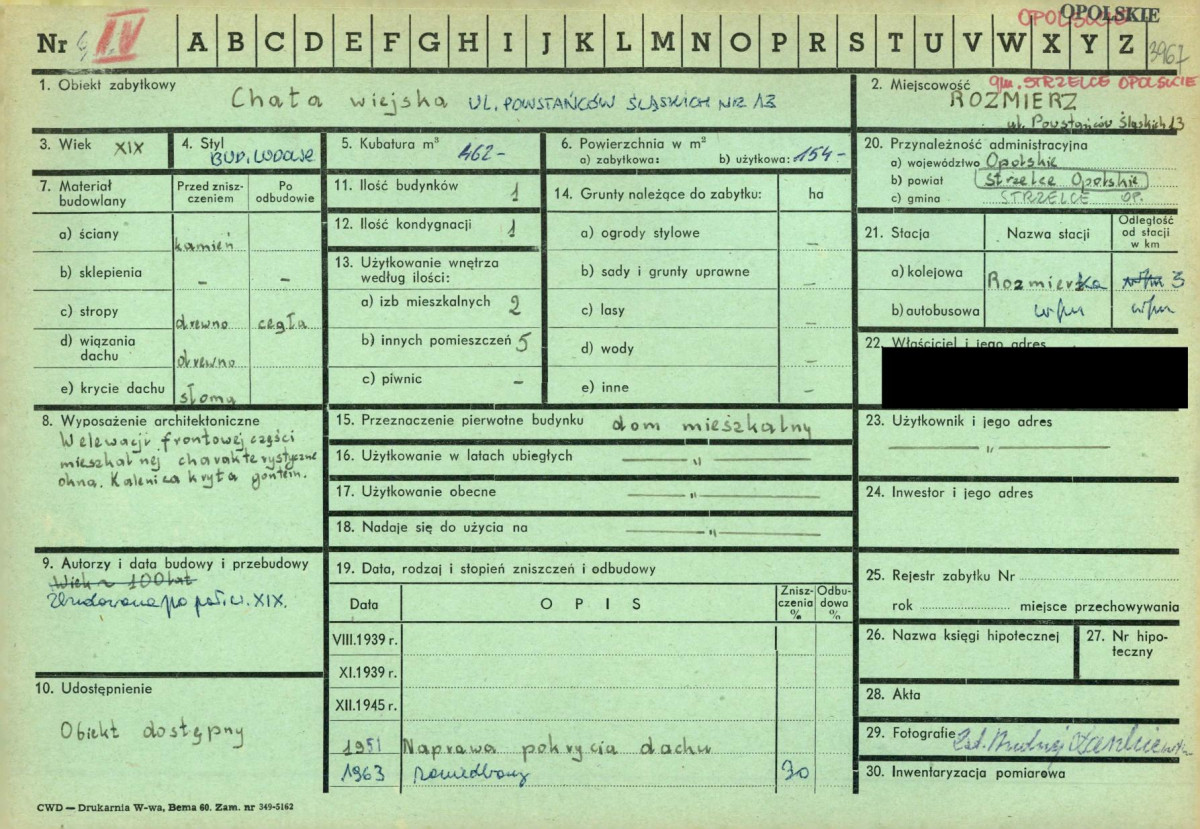 OPOLSKIE OPOLSKIE
Nr IV A B C D E F G H I J K L M N O P R S T U V W X Y Z 3967
1. Obiekt zabytkowy Chata wiejska UL. POWSTAŃCÓW ŚLĄSKICH NR 13
2. Miejscowość gm. STRZELCE OPOLSKIE
ROZMIERZ
ul. Powstańców Śląskich 13
3. Wiek XIX
4. Styl BUD. LUDOWE
5. Kubatura m³ 462-
6. Powierzchnia w m²
a) zabytkowa: b) użytkowa: 154-
7. Materiał budowlany
Przed zniszczeniem
Po odbudowie
a) ściany kamień
b) sklepienia - -
c) stropy drewno cegła
d) wiązania dachu drewno
e) krycie dachu słoma
8. Wyposażenie architektoniczne
W elewacji frontowej części
mieszkalnej charakterystyczne
okna. Kalenica kryta gontem.
9. Autorzy i data budowy i przebudowy
Wiek ~ 100 lat
Zbudowana po poł. w. XIX.
10. Udostępnienie
Obiekt dostępny
11. Ilość budynków 1
12. Ilość kondygnacji 1
13. Użytkowanie wnętrza
według ilości:
a) izb mieszkalnych 2
b) innych pomieszczeń 5
c) piwnic -
14. Grunty należące do zabytku: ha
a) ogrody stylowe -
b) sady i grunty uprawne
c) lasy -
d) wody -
e) inne -
15. Przeznaczenie pierwotne budynku dom mieszkalny
16. Użytkowanie w latach ubiegłych — " —
17. Użytkowanie obecne — " —
18. Nadaje się do użycia na — " —
19. Data, rodzaj i stopień zniszczeń i odbudowy
Data OPIS Zniszczenia % Odbudowa %
VIII.1939 r.
XI.1939 r.
XII.1945 r.
1951 Naprawa pokrycia dachu
1963 zaniedbany 30
20. Przynależność administracyjna
a) województwo Opolskie
b) powiat Strzelce Opolskie
c) gmina STRZELCE OP.
21. Stacja Nazwa stacji Odległość od stacji w km
a) kolejowa Rozmierzka w/m 3
b) autobusowa w/m w/m
22. Właściciel i jego adres
23. Użytkownik i jego adres
— " —
24. Inwestor i jego adres
25. Rejestr zabytku Nr
rok miejsce przechowywania
26. Nazwa księgi hipotecznej
27. Nr hipoteczny
28. Akta
29. Fotografie
30. Inwentaryzacja pomiarowa
CWD — Drukarnia W-wa, Bema 60. Zam. nr 349-5162